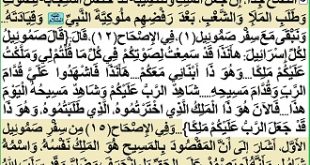 وَطَلَبِ الْمَلَأِ وَالشَّعْبِ، بَعْدَ رَفْضِهِمْ مُلُوكِيَّةَ النَّبِيِّ وَقِيَادَتَهُ
وَنَبْقَى مَعَ سِفْرِ صَمُوئِيلَ(١)، فِي الْإِصْحَاحِ(١٢)، {قَالَ صَمُوئِيلُ
لِكُلِّ إِسْرَائِيلَ: هَأَنَذَا قَدْ سَمِعْتُ لِصَوْتِكُمْ فِي كُلِّ مَا قُلْتُمْ لِي وَمَلَّكْتُ
عَلَيْكُمْ مَلِكًا... وَهُوَ ذَا أَبْنَائِي مَعَكُمْ... هَأَنَذَا فَاشْهَدُوا عَلَيَّ قُدَّامَ
الرَّبِّ وَقُدَّامَ مَسِيحِهِ... فَقَالَ لَهُمْ: شَاهِدٌ الرَّبُّ عَلَيْكُمْ وَشَاهِدٌ
مَسِيحُهُ... فَالْآنَ هُوَ ذَا الْمَلِكُ الَّذِي اخْتَرْتُمُوهُ، الَّذِي طَلَبْتُمُوهُ، وَهُوَ ذَا
قَدْ جَعَلَ الرَّبُّ عَلَيْكُمْ مَلِكًا}...وَفِي الْإِصْحَاحِ(١٥) مِنْ سِفْرِ صَمُوئِيلَ
الْأَوَّلِ، أَشَارَ إِلَى أَنَّ الْمَقْصُودَ بِالْمَسِيحِ هُوَ الْمَلِكُ نَفْسُهُ وَاسْمُهُ